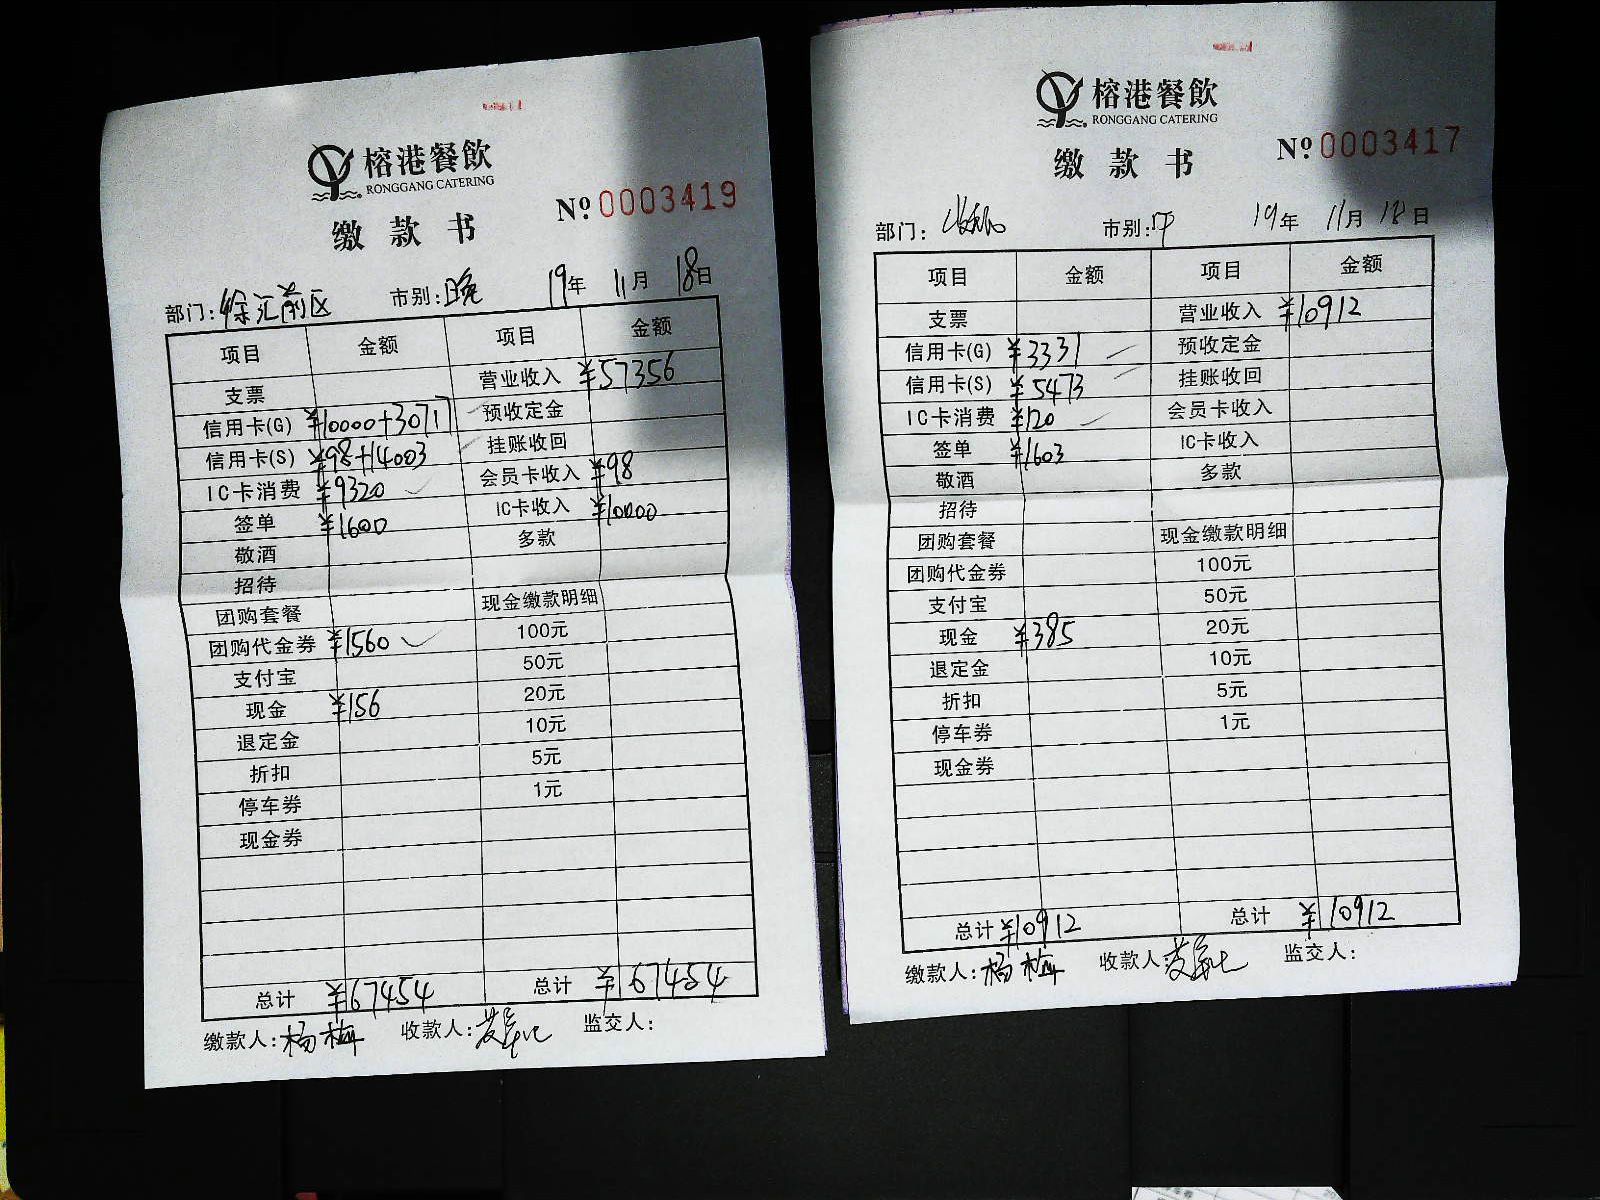 榕港餐飲
RONGGANG CATERING
缴款书
Nº 0003419
部门: 徐汇前区 市别: 晚 19年 11月 18日
项目 金额 项目 金额
支票 营业收入 ¥57356
信用卡(G) ¥10000+30717 预收定金
信用卡(S) ¥98+14003 挂账收回
IC卡消费 ¥9320 会员卡收入 ¥98
签单 ¥1600 IC卡收入 ¥10000
敬酒 多款
招待
团购套餐 现金缴款明细
团购代金券 ¥1560 100元
支付宝 50元
现金 ¥156 20元
退定金 10元
折扣 5元
停车券 1元
现金券
总计 ¥67454 总计 ¥67454
缴款人: 杨梅 收款人: 监交人:
榕港餐飲
RONGGANG CATERING
缴款书
Nº 0003417
部门: 市别: 19年 11月 18日
项目 金额 项目 金额
支票 营业收入 ¥10912
信用卡(G) ¥3331 预收定金
信用卡(S) ¥5473 挂账收回
IC卡消费 ¥120 会员卡收入
签单 ¥1603 IC卡收入
敬酒 多款
招待
团购套餐 现金缴款明细
团购代金券 100元
支付宝 50元
现金 ¥385 20元
退定金 10元
折扣 5元
停车券 1元
现金券
总计 ¥10912 总计 ¥10912
缴款人: 杨梅 收款人: 监交人: